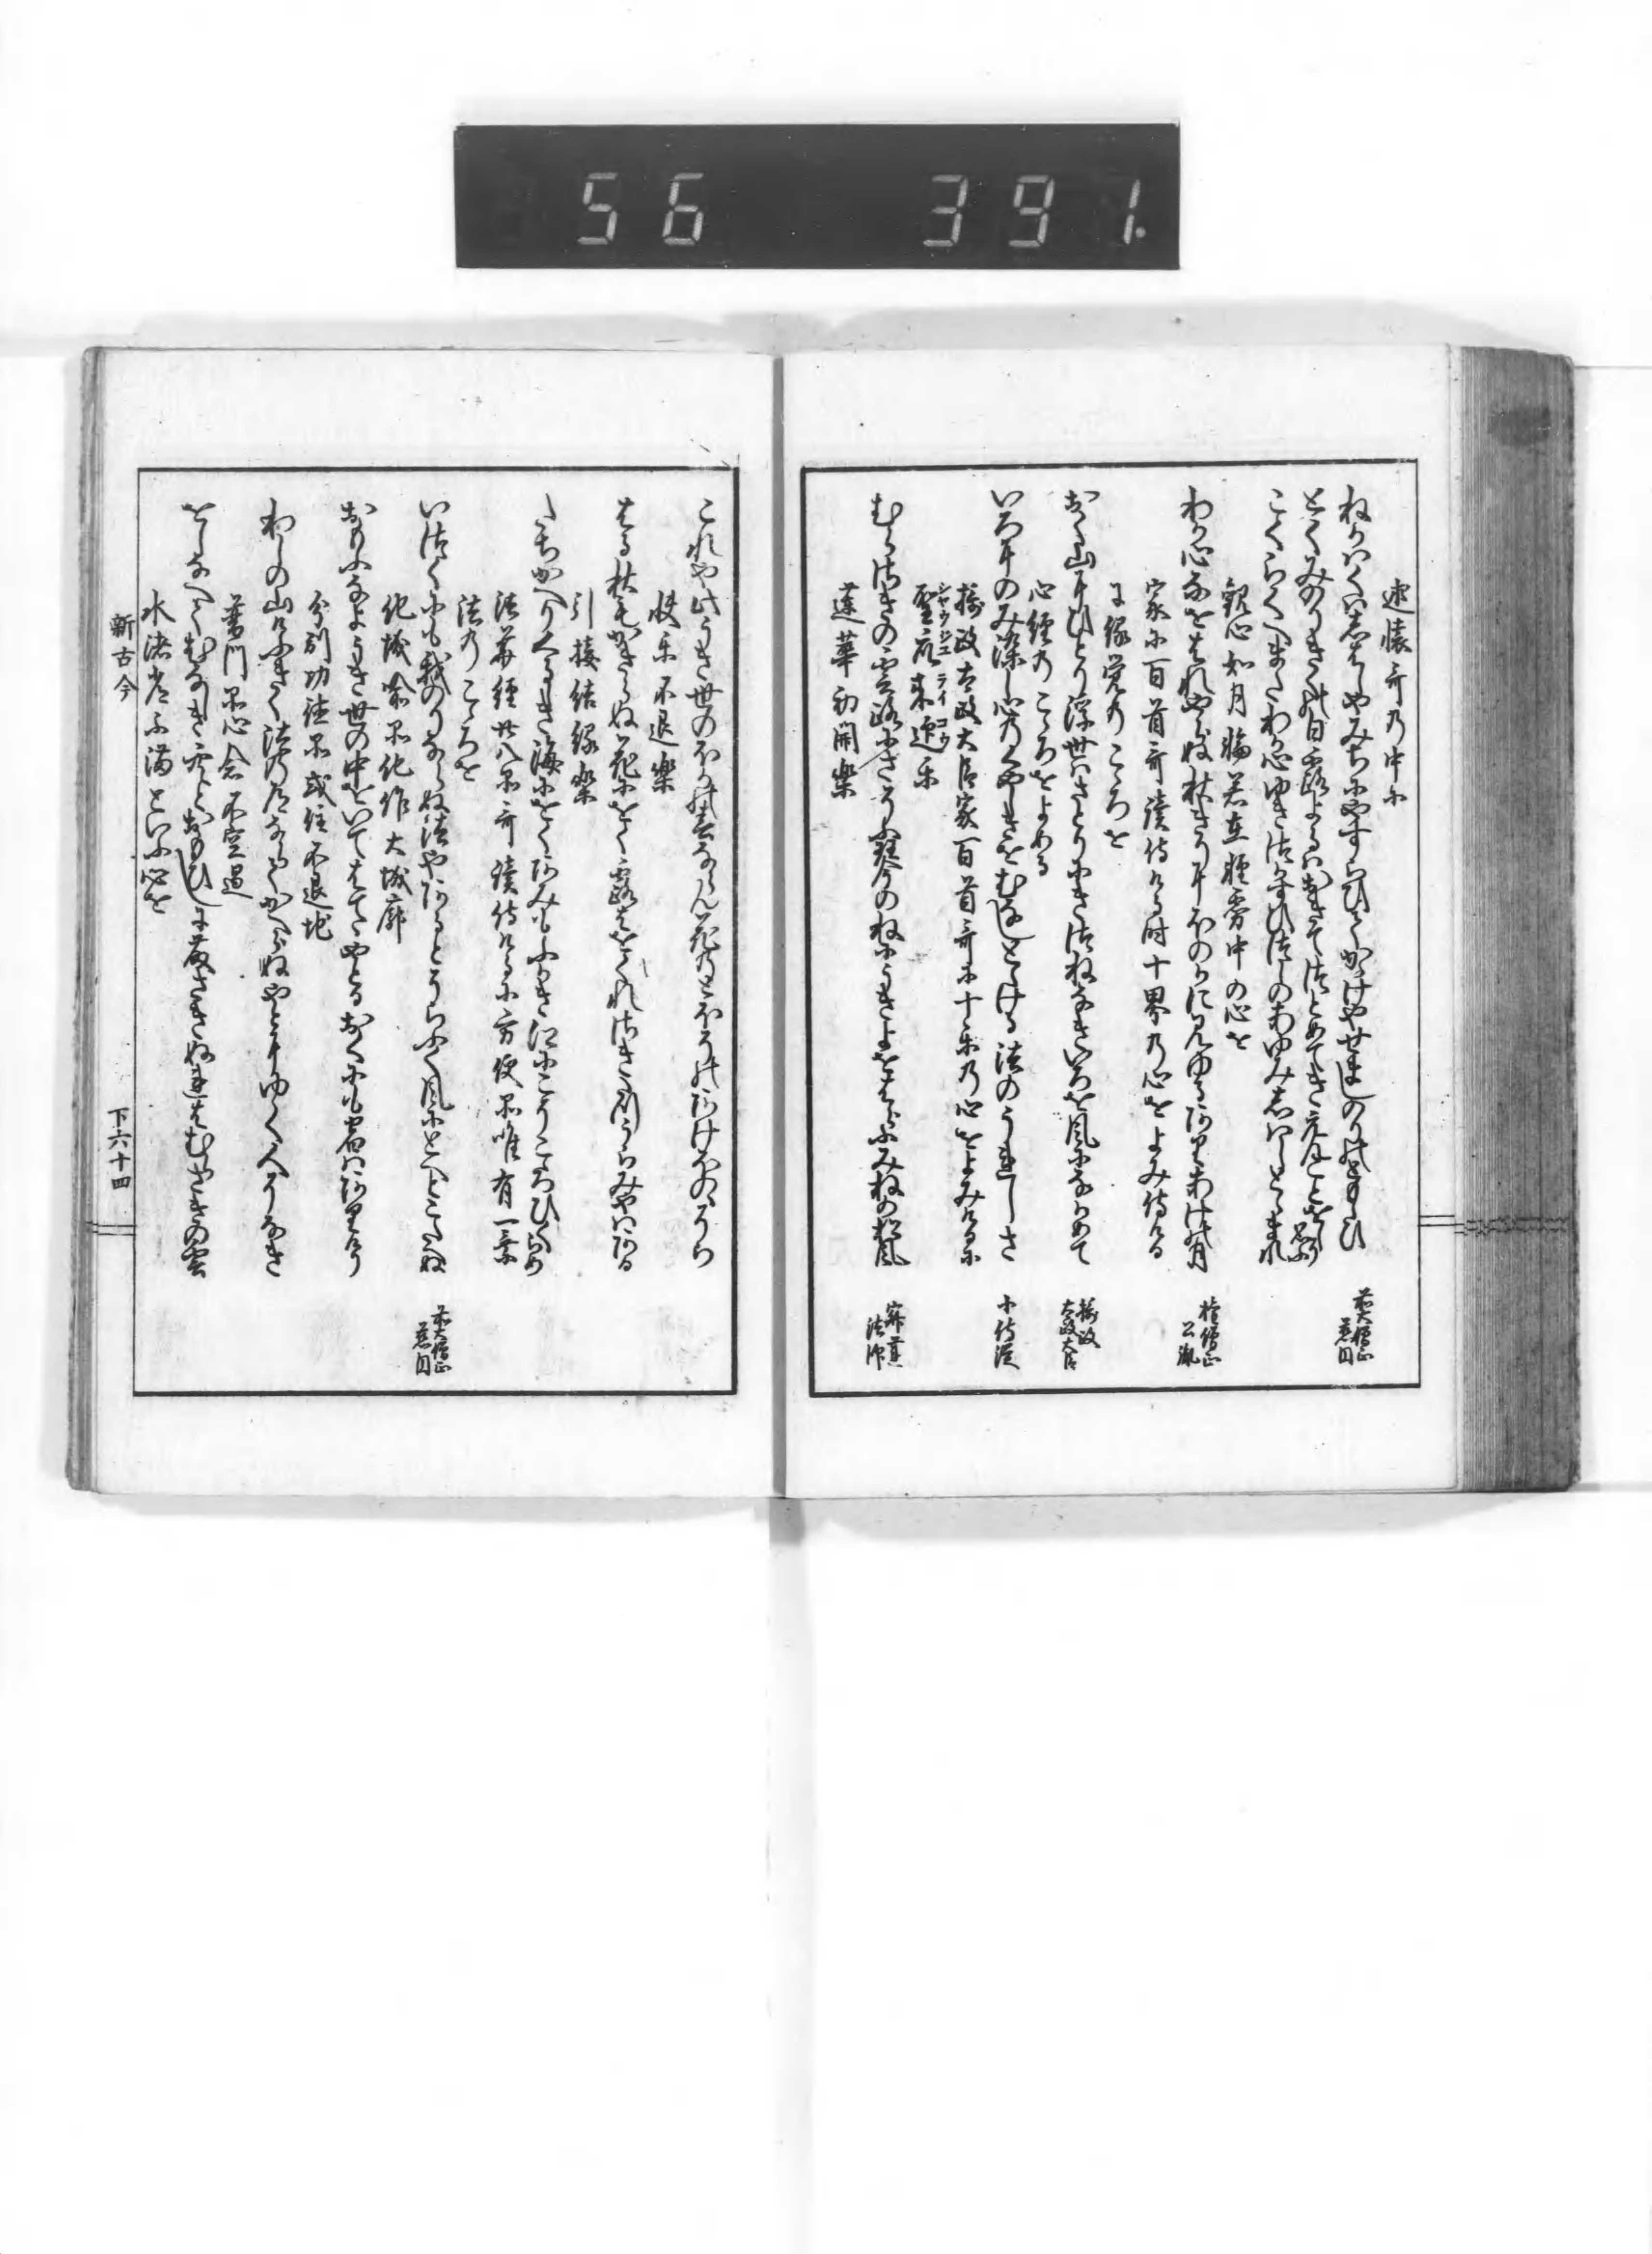 述懐哥乃中に
ねかはくは志はしやみちにやすらひてかゝけやせましのりのともしひ
前大僧正
慈円
とくみのりきくの白露よるはおきてつとめてきえんことをしそ思ふ
こくらくへまたわか心ゆきつかすひつしのあゆみ志はしとゝまれ
観心如月輪若在軽霧中の心を
権僧正
公胤
わか心なをはれやらぬ秋きりにほのかに見ゆるあり明の月
家に百首哥読侍ける時十界乃心をよみ侍ける
に縁覚乃こゝろを
摂政
太政大臣
おく山にひとり浮世はさとりにきつねなきいろを風になかめて
心経乃こゝろをよめる
小侍従
いろにのみ染し心乃くやしきをむなしとゝける法のうれしさ
摂政太政大臣家百首哥に十楽乃心をよみけるに
聖衆来迎楽
シヤウジユ ライコウ
寂蓮
法師
むらさきの雲路にさそふ琴のねにうきよをはらふみねの松風
蓮華初開楽
これや此うき世のほかの春ならん花乃とほそのあけほのゝそら
快楽不退楽
はる秋もかきらぬ花にをく露はをくれさきたつうらみやはある
引接結縁楽
たちかへりくるしき海にをくあみもふかき江にこそこゝろひくらめ
法華経廿八品哥読侍けるに方便品唯有一乗
法乃こゝろを
前大僧正
慈円
いつくにも我のりならぬ法やあるとそらふく風にとへとこたへぬ
化城喩品化作大城廓
おもふなようき世の中をいてはてゝやとるおくにも宿はありけり
分別功徳品或住不退地
わしの山けふきく法乃道ならてかへらぬやとにゆく人そなき
普門品心念不空過
をしなへてむなしき空とおもひしに藤さきぬれはむらさきの雲
水渚常不満といふ心を
新古今
下六十四
56 391.